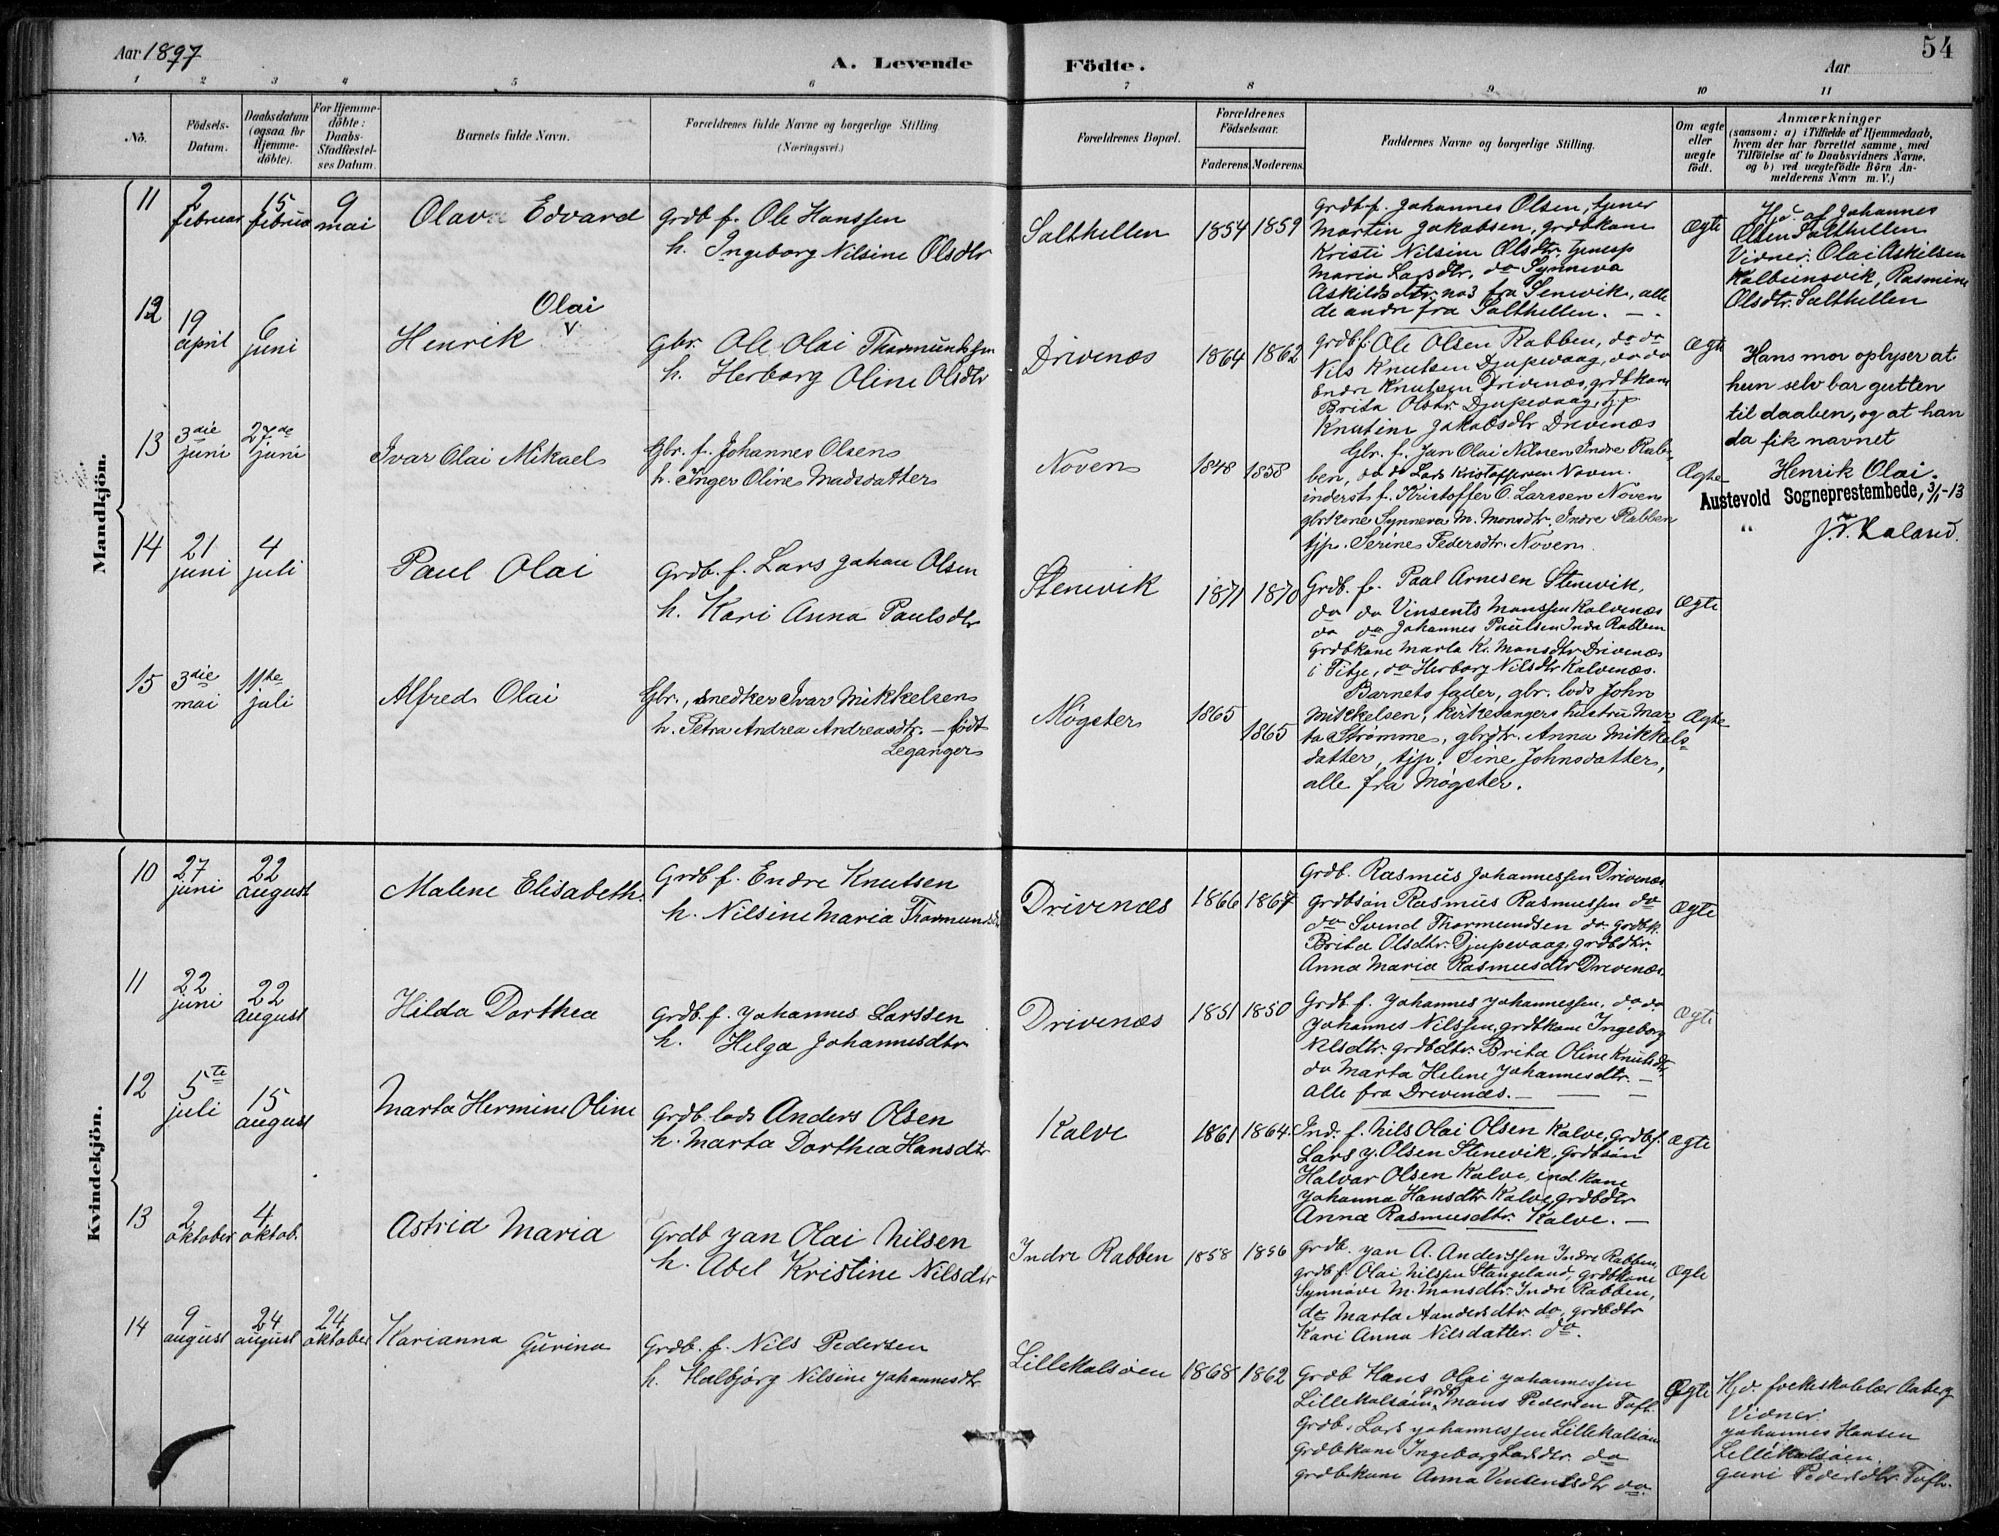 Aar 1897
A. Levende Födte.
Aar
54
1 2 3 4 5 6 7 8 9 10 11
No.
Födsels-
Datum.
Daabsdatum
(ogsaa for
Hjemme-
döbte).
For Hjemme-
döbte:
Daabs-
Stadfæstel-
ses Datum.
Barnets fulde Navn.
Forældrenes fulde Navne og borgerlige Stilling
(Næringsvei.)
Forældrenes Bopæl.
Forældrenes
Födselsaar.
Faderens. Moderens.
Faddernes Navne og borgerlige Stilling.
Om ægte
eller
uægte
født.
Anmærkninger
(saasom: a) i Tilfælde af Hjemmedaab,
hvem der har forrettet samme, med
Tilföielse af to Daabsvidners Navne.
og b) ved uægtefödte Börn An-
melderens Navn m. V.)
Mandkjön.
11
2
februar
15
februar
9
mai
Olava Edvard
Grdb f. Ole Hanssen
h. Ingeborg Nilsine Olsdtr
Salthellen
1854 1859
Grdb f. Johannes Olsen, tjener
Martin Jakobsen, grdbkone
Kristi Nilsine Olsdtr. tjenesp
Maria Larsdtr. do Synneva
Askildsdtr. no 3 fra Stenevik, alle
de andre fra Salthellen. —
Ægte
Hjd. af Johannes
Olsen Salthellen
Vidner: Olai Askilsen
Kalbeinsvik, Rasmine
Olsdtr. Salthellen
12
19
april
6
juni
Olai
Henrik V
Gbr. Ole Olai Thormundsen
h. Herborg Oline Olsdtr
Drivenæs
1864 1862
Grdb f. Ole Olsen Rabben, do do
Nils Knutsen Djupevaag, do do
Endre Knutsen Drivenæs, grdbkone
Brita Olsdtr Djupevaag, tjp
Knutine Jakobsdtr Drivenæs
Ægte
Hans mor oplyser at
hun selv bar gutten
til daaben, og at han
da fik navnet
Henrik Olai.
Austevold Sogneprestembede, 3/1-13
13
3die
juni
27de
juni
Ivar Olai Mikael
Gbr. f. Johannes Olsen
h. Inger Oline Madsdatter
Noven
1848 1858
Gbr. f. Jan Olai Nilsen Indre Rab-
ben, do do Lars Kristoffersen Noven.
inderst f. Kristoffer O. Larssen Noven
gbrkone Synneva M. Monsdtr. Indre Rabben
tjp. Serine Pedersdtr. Noven.
Ægte
14
21
juni
4
juli
Paul Olai
Grdb. f. Lars Johan Olsen
h. Kari Anna Paulsdtr
Stenevik
1871 1870
Grdb. f. Paal Arnesen Stenevik,
do do Vinsents Monssen Kalvenæs
do do Johannes Paulsen Indre Rabben
Grdbkone Marta K. Monsdtr Drivenæs
i Fitje, do Herborg Nilsdtr Kalvenæs.
Ægte
15
3die
mai
11te
juli
Alfred Olai
Gbr., snedker Ivar Mikkelsen
h. Petra Andrea Andreasdtr. – født
Leganger
Møgster
1865 1865
Barnets fader, gbr. lods John
Mikkelsen, kirkesangers hustru Mar-
ta Strømme, gbrdtr. Anna Mikkels-
datter, tjp. Sine Johnsdatter,
alle fra Møgster.
Ægte
Kvindekjön.
10
27
juni
22
august
Malene Elisabeth.
Grdb f. Endre Knutsen
h. Nilsine Maria Thormundsdtr
Drivenæs
1866 1867
Grdb. Rasmus Johannessen Drivenæs
grdbsön Rasmus Rasmussen do
do Svend Thormundsen do grdbk.
Brita Olsdtr. Djupevaag, grdbdtr.
Anna Maria Rasmusdtr Drivenæs.
Ægte
11
22
juni
22
august
Hilda Dorthea
Grdb. f. Johannes Larssen
h. Helga Johannesdtr
Drivenæs
1851 1850
Grdb. f. Johannes Johannessen, do do
Johannes Nilssen, grdbkone Ingeborg
Nilsdtr. grdbdtr. Brita Oline Knutsdtr.
do Marta Helene Johannesdtr. —
Alle fra Drivenæs. —
Ægte
12
5te
juli
15
august
Marta Hermine Oline
Grdb. lods Anders Olsen
h. Marta Dorthea Hansdtr
Kalve
1861 1864.
Ind. f. Nils Olai Olsen Kalve, Grdb f.
Lars J. Olsen Stenevik, grdbsön
Halvar Olsen Kalve, ind. kone
Johanna Hansdtr Kalve, grdbdtr
Anna Rasmusdtr. Kalve. —
Ægte
13
2
oktober
4
oktob.
Astrid Maria
Grdb Jan Olai Nilsen
h. Abel Kristine Nilsdtr
Indre Rabben
1858 1856
Grdb. Jan A. Anderssen Indre Rabben,
grdb f. Olai Nilssen Stangeland, grdbkone
Synnøve M. Monsdtr. Indre Rabben,
do Marta Aandersdtr do, grdbdtr
Kari Anna Nilsdatter. do.
Ægte
14
9
august
24
august
24
oktober
Karianna Gurina
Grdb. f. Nils Pedersen
h. Halbjørg Nilsine Johannesdtr.
Lillekalsøen
1868 1862
Grdb Hans Olai Johannessen
Lillekalsöen, grdb Mons Pedersen Toft.
Grdb. Lars Johannessen Lillekalsöen
Grdbkone Ingeborg Larsdtr. do
grdbkone Anna Vinsentsdtr do.
Ægte
Hjd. folkeskolelær Aaberg
Vidner
Johannes Hansen
Lillekalsöen
Guri Pedersdtr. Toft.